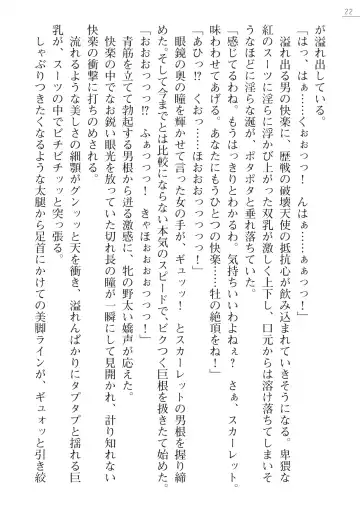 22
が溢れ出している。
「はっ、はぁ……くぉぉっっ！　んはぁ……ぁぁっっ！」
　溢れ出る男の快楽に、歴戦の破壊天使の抵抗心が飲み込まれていきそうになる。卑猥な
紅のスーツに淫らに浮かび上がった双乳が激しく上下し、口元からは溶け落ちてしまい
うなほどに淫らな涎が、ポタポタと垂れ落ちていた。
「感じてるわね。もうはっきりとわかるわ。気持ちいいわよねぇ？　さぁ、スカーレット。
味わわせてあげる。あなたにもうひとつの快楽……牡の絶頂をね！」
「あひっ!?　くおっ……ほおおおっっっっっ！」
　眼鏡の奥の瞳を輝かせて言った女の手が、ギュッッ！　とスカーレットの男根を握り締
めた。そして今までとは比較にならない本気のスピードで、ビクつく巨根を扱きたて始めた。
「おおおっっっ!?　ふぁっっっっ！　きゃほぉぉおっっっっ！」
　青筋を立てて勃起する男根から迸る激感に、牝の野太い嬌声が応えた。
　快楽の中でなお鋭い眼光を放っていた切れ長の瞳が一瞬にして見開かれ、計り知れない
快楽の衝撃に打ちのめされる。
　流れるような美しさの細顎がグンッッと天を衝き、溢れんばかりにタプタプと揺れる巨
乳が、スーツの中でビチビチッッと突っ張る。
　しゃぶりつきたくなるような太腿から足首にかけての美脚ラインが、ギュオッと引き絞